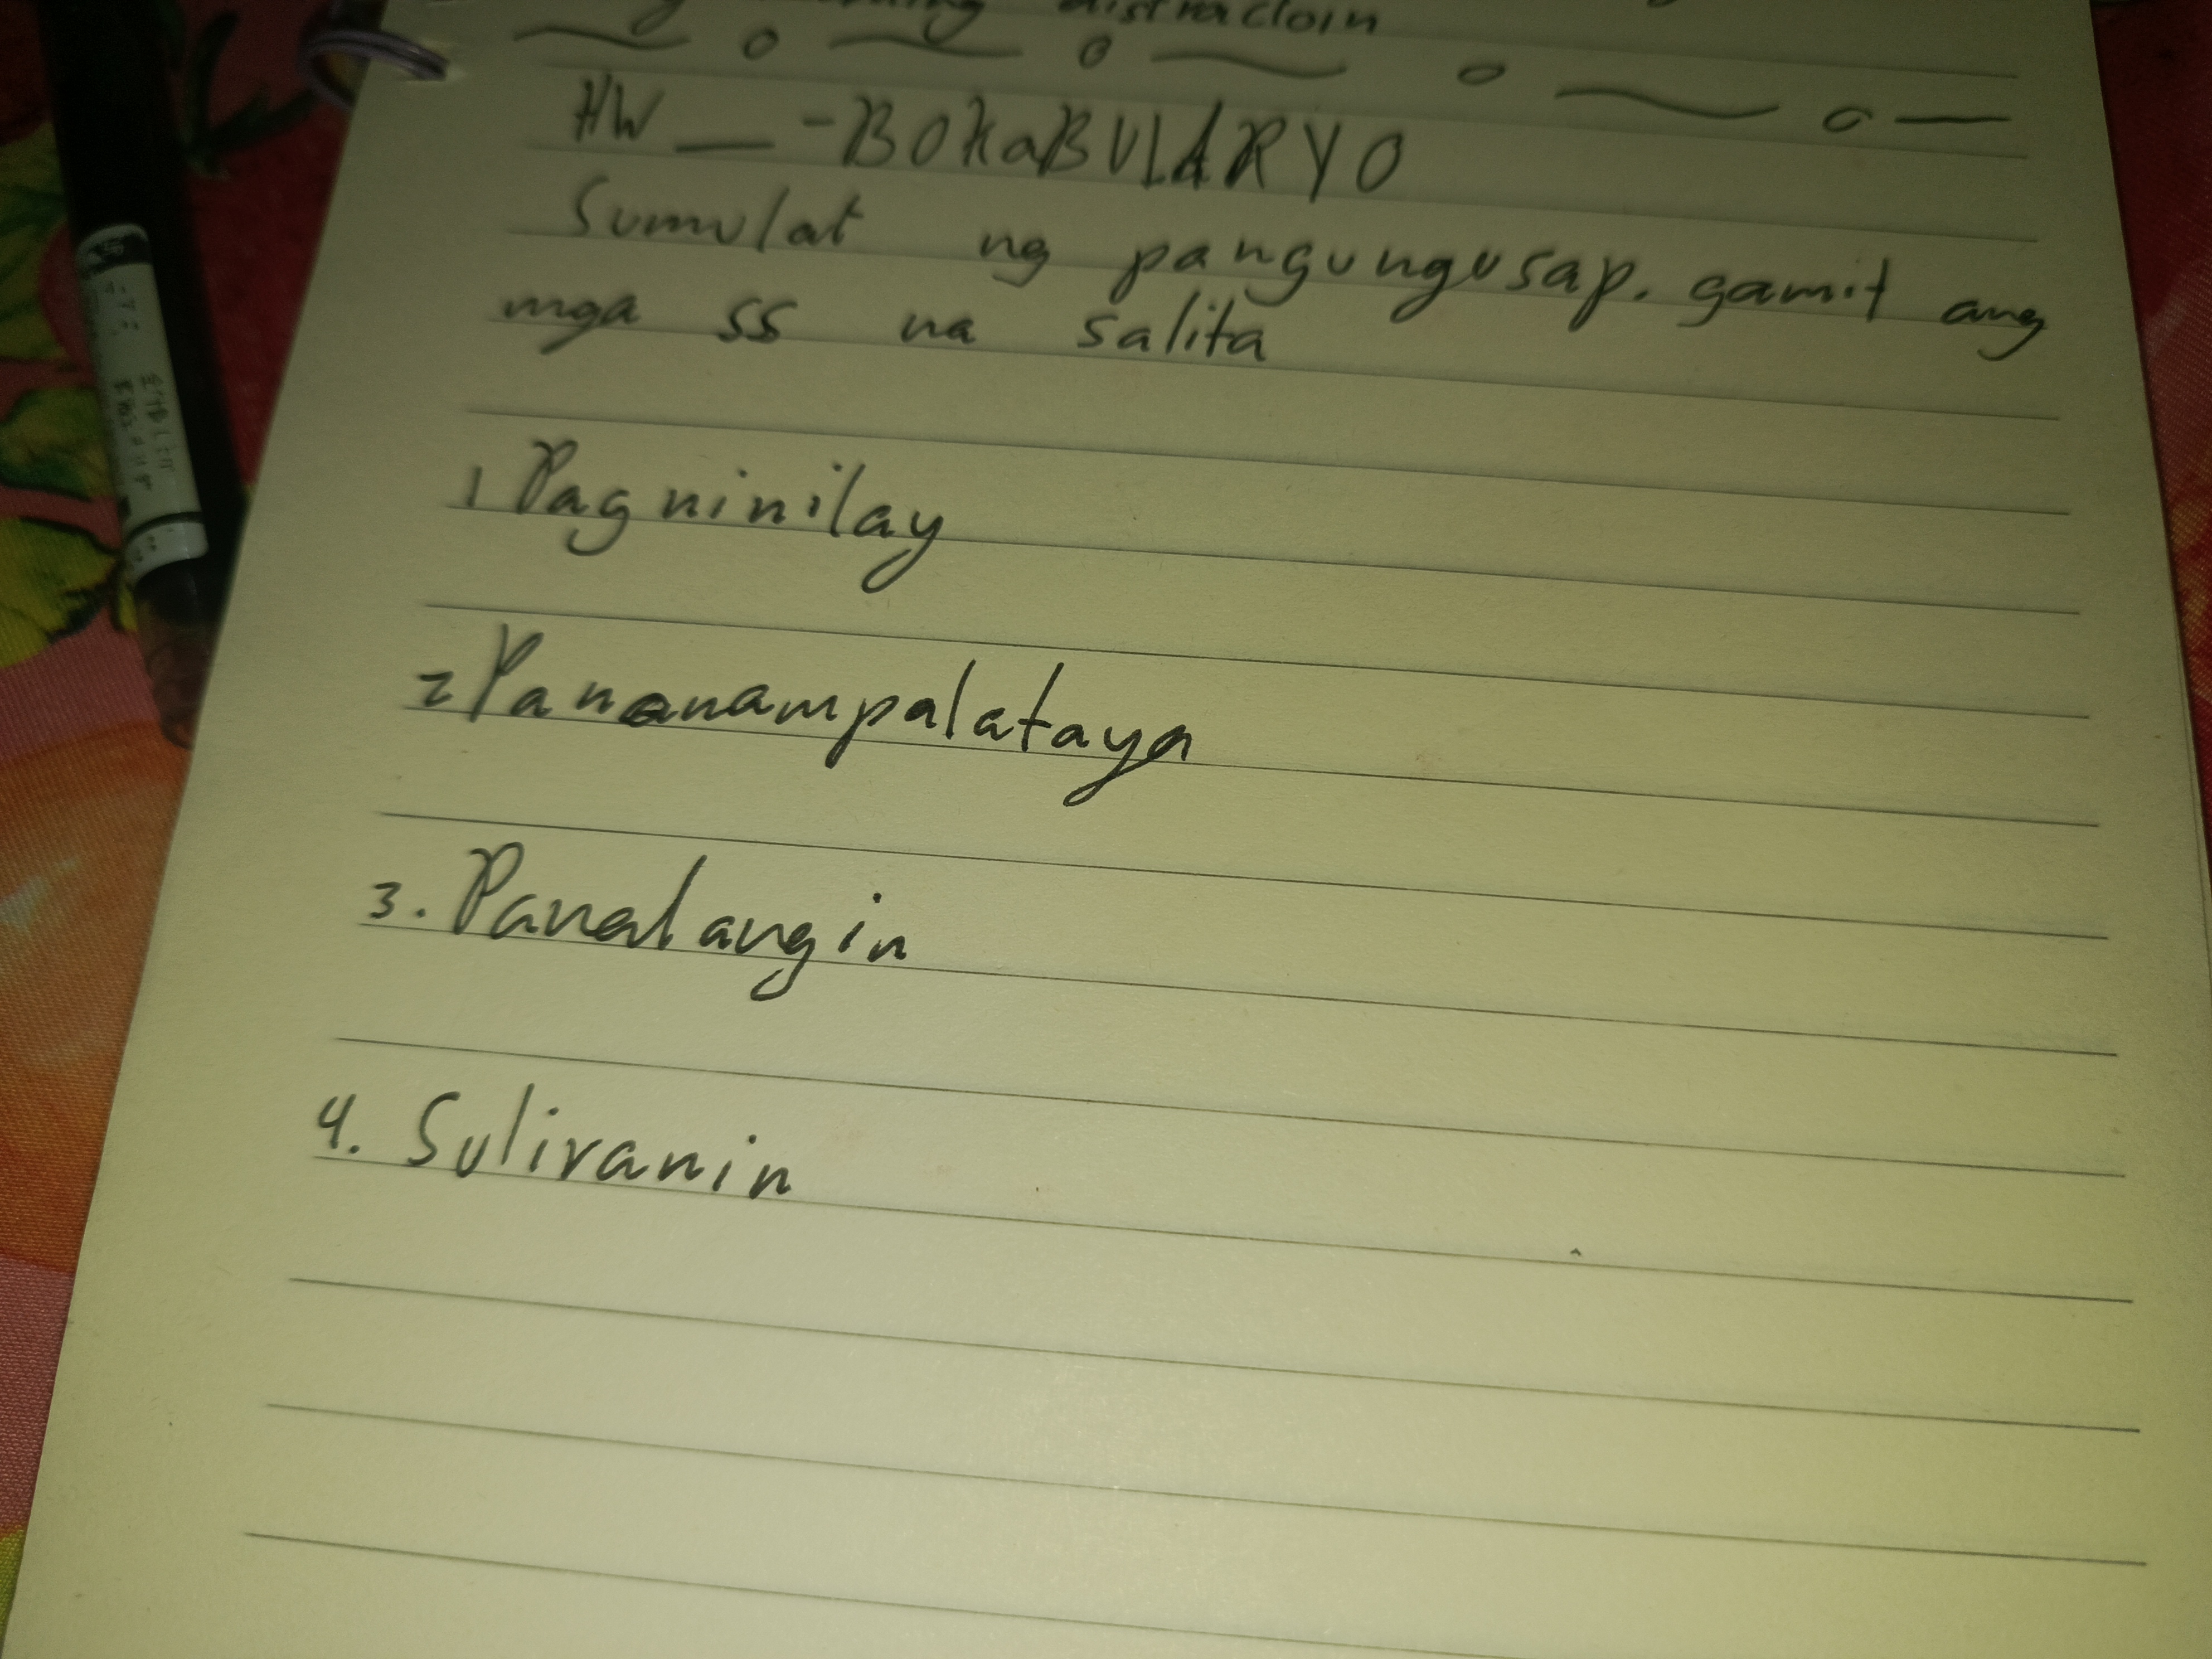 distracloin
HW — -BOKaBULARYO
Sumulat ng pangungusap. gamit ang
mga SS na salita
1 Pagninilay
2 Pananampalataya
3. Panalangin
4. Suliranin